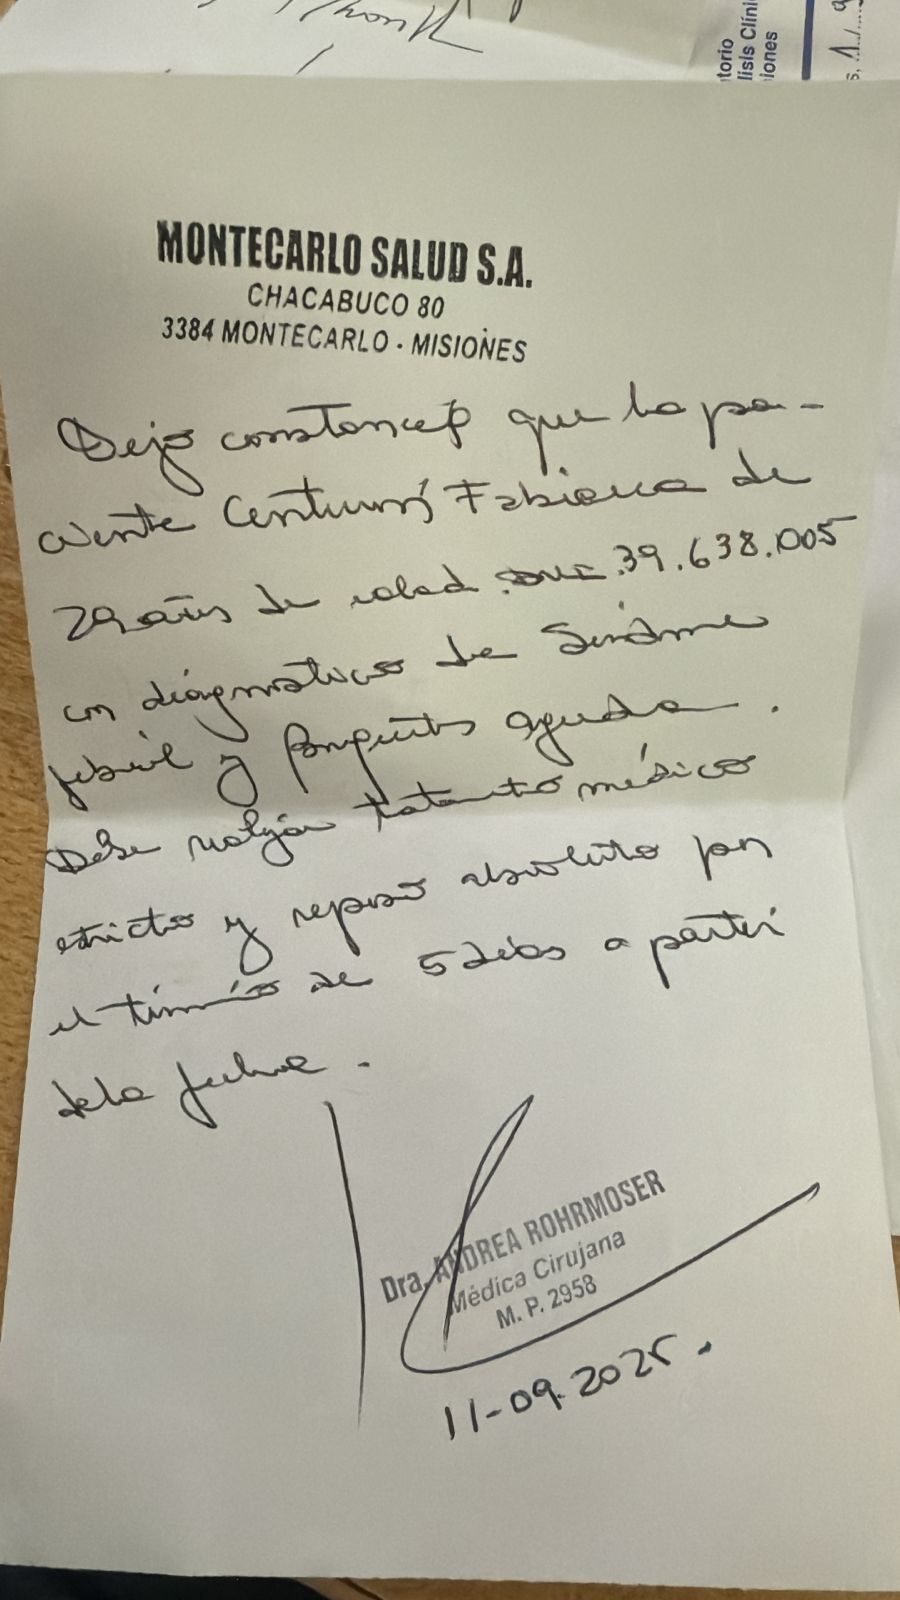 torio
lisis Clíni
iones
MONTECARLO SALUD S.A.
CHACABUCO 80
3384 MONTECARLO - MISIONES
Dejo constancia que la pa-
ciente Centurión Fabiana de
29 años de edad DNI 39.638.005
con diagnostico de Síndrome
febril y faringitis aguda.
Debe realizar tratamiento médico
estricto y reposo absoluto por
el término de 5 días a partir
de la fecha.
Dra. ANDREA ROHRMOSER
Médica Cirujana
M. P. 2958
11-09-2025.